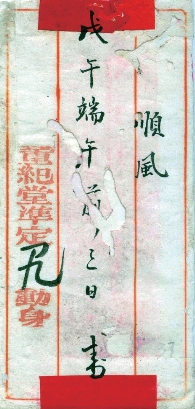 順風
戊午端午前八三日 書
董紀堂準定
九
動身